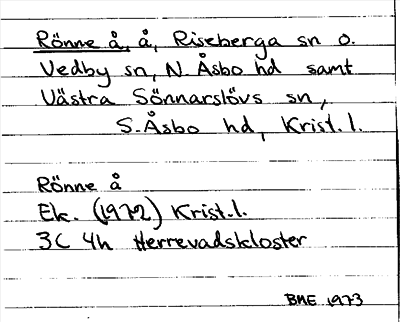 Rönne å, å, Riseberga sn o.
Vedby sn, N. Åsbo hd samt
Västra Sönnarslövs sn,
S. Åsbo hd, Krist. l.
Rönne å
Ek. (1972) Krist. l.
3C 4h Herrevadskloster
BME 1973